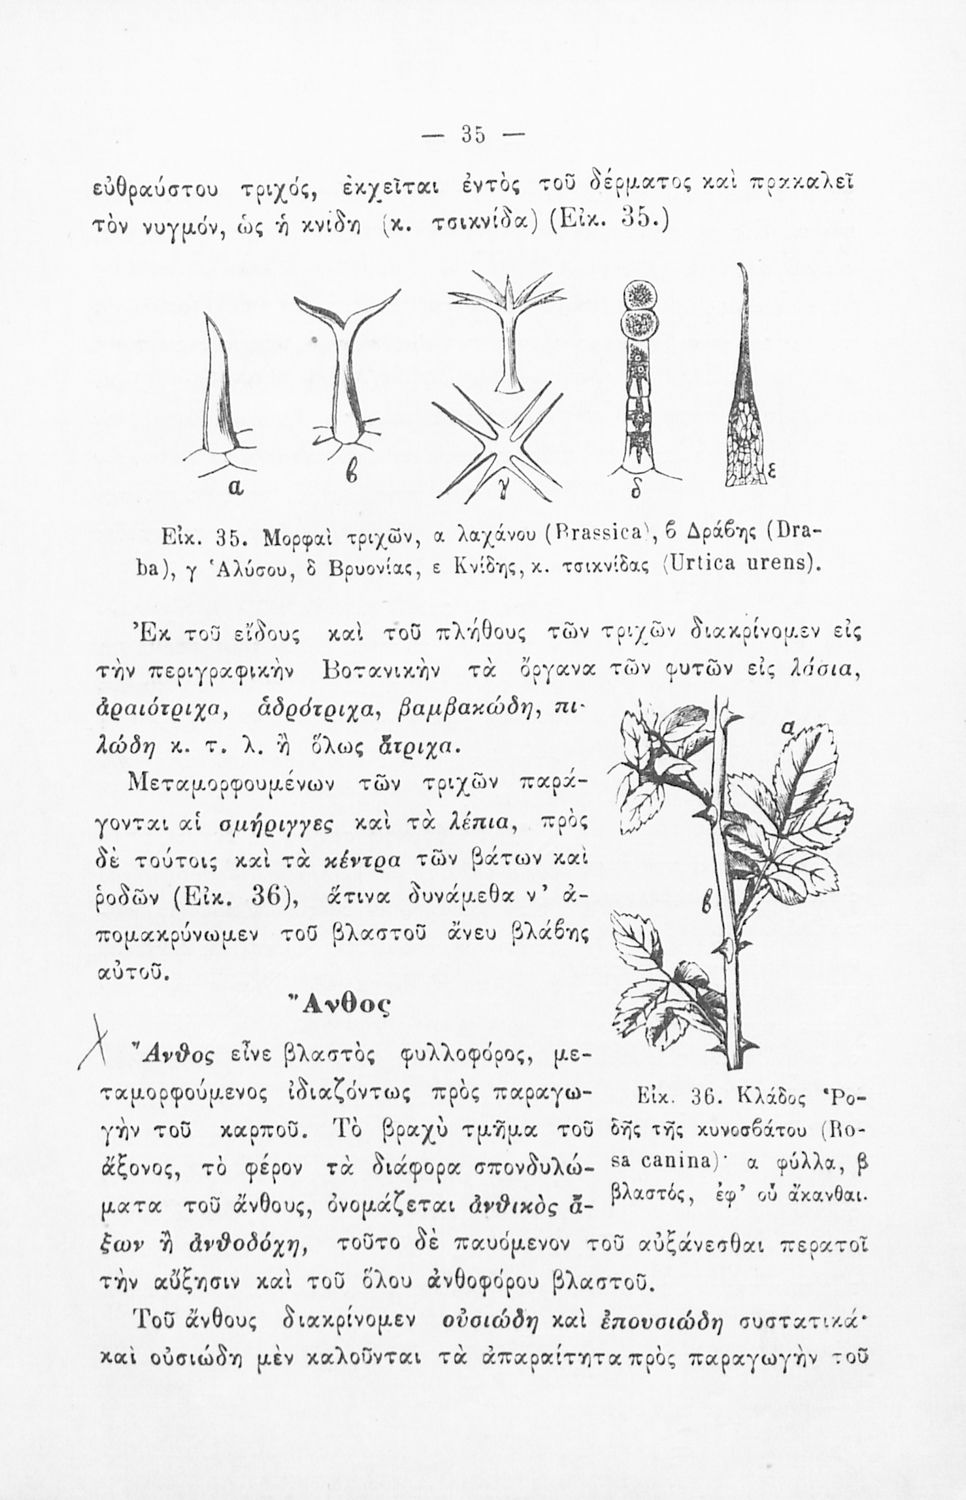 — 35 —
εὐθραύστου τριχός, ἐκχεῖται ἐντὸς τοῦ δέρματος καὶ πρακαλεῖ
τὸν νυγμόν, ὡς ἡ κνίδη (κ. τσικνίδα) (Εἰκ. 35.)
α
β
γ
δ
ε
Εἰκ. 35. Μορφαὶ τριχῶν, α λαχάνου (Brassica), ϐ Δράϐης (Dra-
ba), γ Ἀλύσου, δ Βρυονίας, ε Κνίδης, κ. τσικνίδας (Urtica urens).
Ἐκ τοῦ εἴδους καὶ τοῦ πλήθους τῶν τριχῶν διακρίνομεν εἰς
τὴν περιγραφικὴν Βοτανικὴν τὰ ὄργανα τῶν φυτῶν εἰς λάσια,
ἀραιότριχα, ἁδρότριχα, βαμβακώδη, πι-
λώδη κ. τ. λ. ἢ ὅλως ἄτριχα.
Μεταμορφουμένων τῶν τριχῶν παρά-
γονται αἱ σμήριγγες καὶ τὰ λέπια, πρὸς
δὲ τούτοις καὶ τὰ κέντρα τῶν βάτων καὶ
ῥοδῶν (Εἰκ. 36), ἅτινα δυνάμεθα ν’ ἀ-
πομακρύνωμεν τοῦ βλαστοῦ ἄνευ βλάϐης
αὐτοῦ.
α
β
Ἄνθος
Ἄνθος εἶνε βλαστὸς φυλλοφόρος, με-
ταμορφούμενος ἰδιαζόντως πρὸς παραγω-
γὴν τοῦ καρποῦ. Τὸ βραχὺ τμῆμα τοῦ
ἄξονος, τὸ φέρον τὰ διάφορα σπονδυλώ-
ματα τοῦ ἄνθους, ὀνομάζεται ἀνθικὸς ἄ-
Εἰκ. 36. Κλάδος Ῥο-
δῆς τῆς κυνοσϐάτου (Ro-
sa canina)· α φύλλα, β
βλαστός, ἐφ’ οὗ ἄκανθαι.
ξων ἢ ἀνθοδόχη, τοῦτο δὲ παυόμενον τοῦ αὐξάνεσθαι περατοῖ
τὴν αὔξησιν καὶ τοῦ ὅλου ἀνθοφόρου βλαστοῦ.
Τοῦ ἄνθους διακρίνομεν οὐσιώδη καὶ ἐπουσιώδη συστατικά·
καὶ οὐσιώδη μὲν καλοῦνται τὰ ἀπαραίτητα πρὸς παραγωγὴν τοῦ